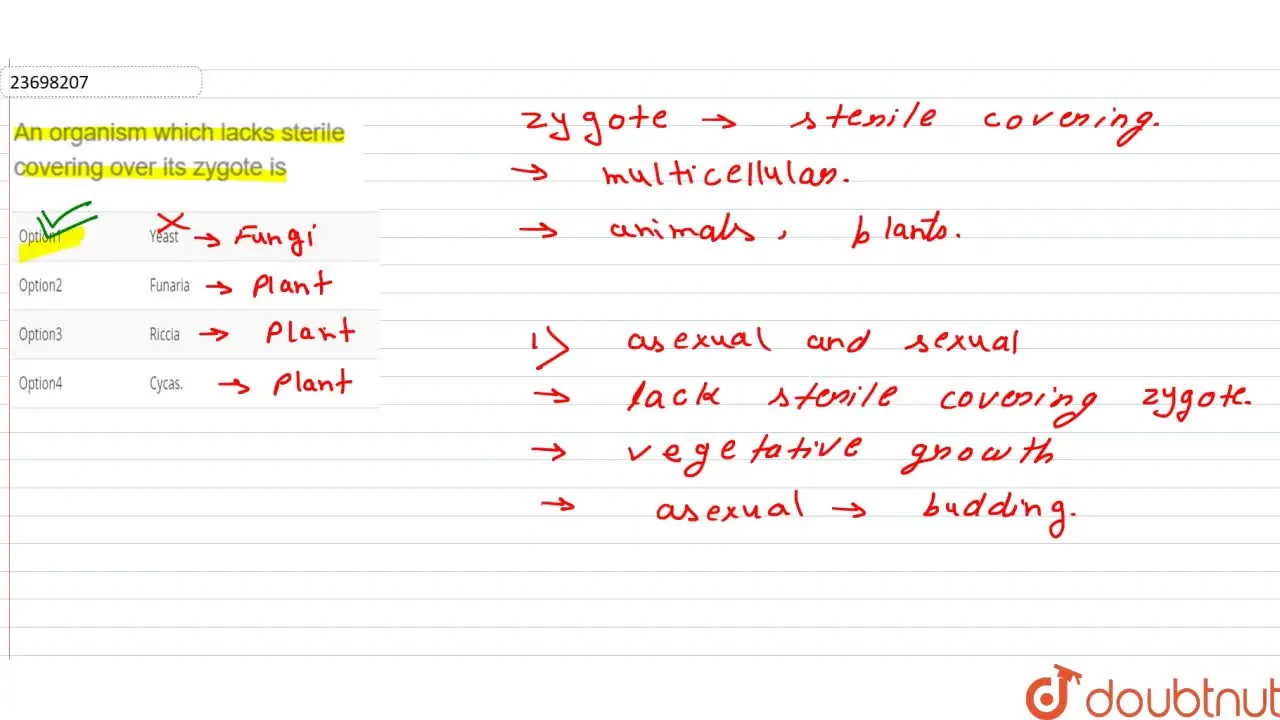 23698207
An organism which lacks sterile
covering over its zygote is
Option1 Yeast → Fungi
Option2 Funaria → Plant
Option3 Riccia → Plant
Option4 Cycas. → Plant
zygote → sterile covering.
→ multicellular.
→ animals, plants.
1) asexual and sexual
→ lack sterile covering zygote.
→ vegetative growth
→ asexual → budding.
doubtnut